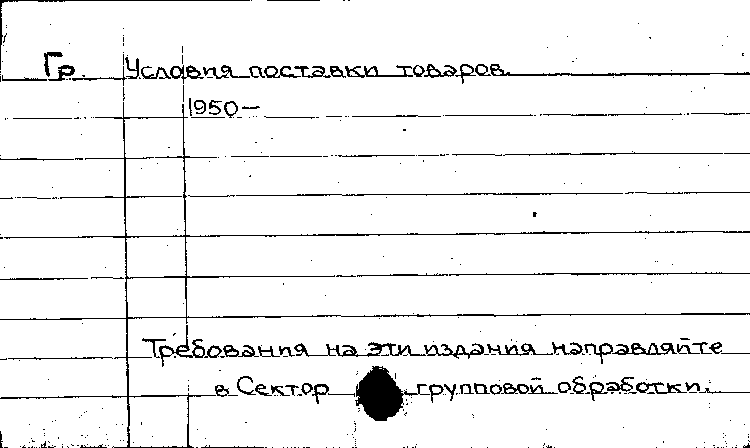 Гр. Условия поставки товаров.
1950—
Требования на эти издания направляйте
в Сектор групповой обработки.